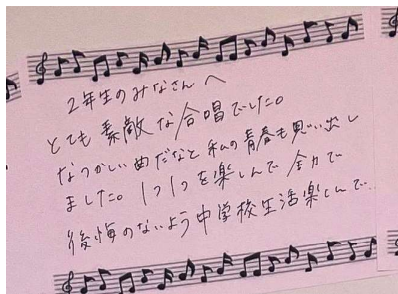 2年生のみなさんへ
とても素敵な合唱でした。
なつかしい曲だなと私の青春も思い出し
ました。1つ1つを楽しんで全力で
後悔のないよう中学校生活楽しんで